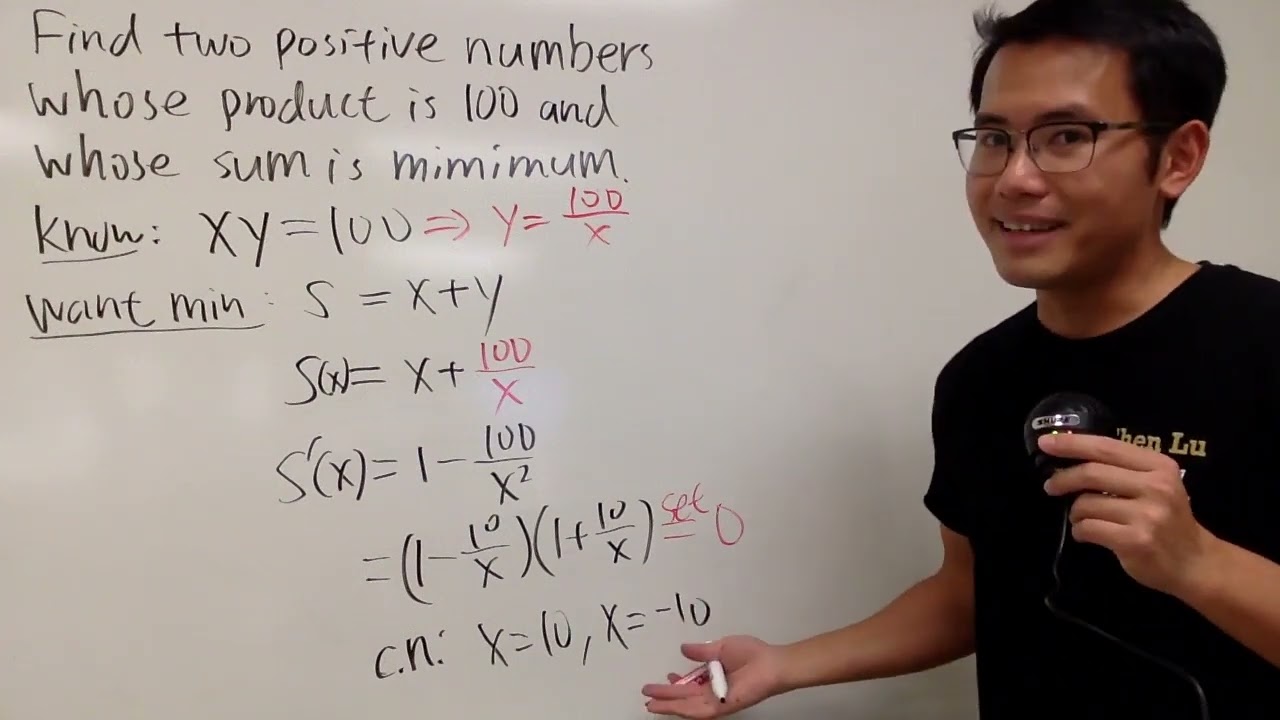 Find two positive numbers
whose product is 100 and
whose sum is mimimum.
Know: XY = 100 ⇒ Y = 100/x
Want min: S = X + y
S(x) = X + 100/x
S'(x) = 1 - 100/x²
= (1 - 10/x)(1 + 10/x) set = 0
c.n: X = 10, X = -10
SHURE
hen Lu